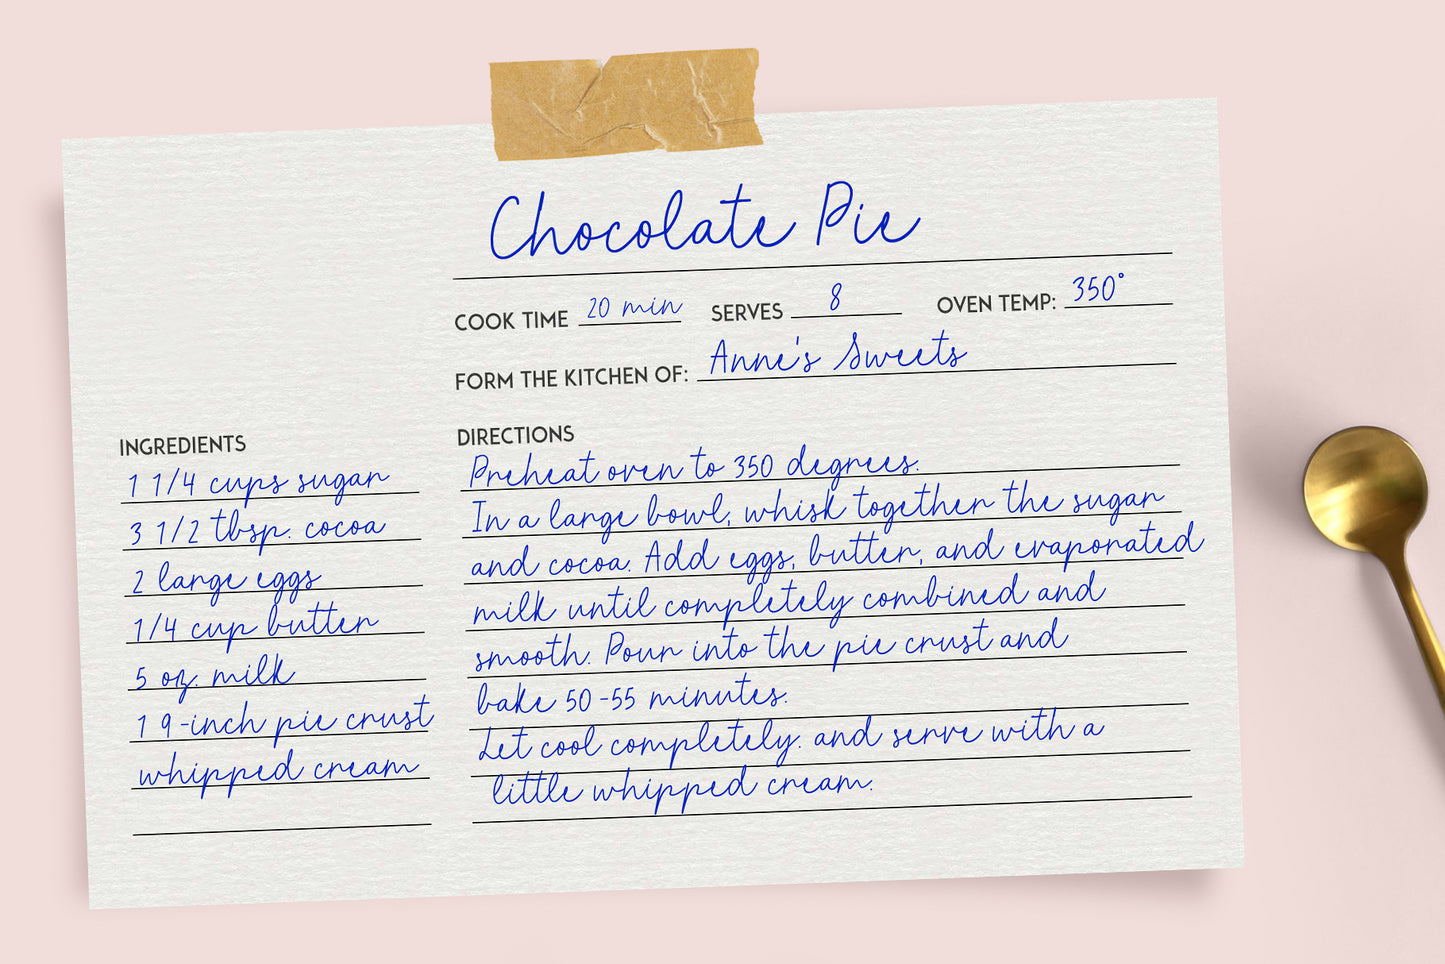 Chocolate Pie
COOK TIME 20 min SERVES 8 OVEN TEMP: 350°
FORM THE KITCHEN OF: Anne's Sweets
INGREDIENTS
1 1/4 cups sugar
3 1/2 tbsp. cocoa
2 large eggs
1/4 cup butter
5 oz. milk
1 9-inch pie crust
whipped cream
DIRECTIONS
Preheat oven to 350 degrees.
In a large bowl, whisk together the sugar
and cocoa. Add eggs, butter, and evaporated
milk until completely combined and
smooth. Pour into the pie crust and
bake 50-55 minutes.
Let cool completely. and serve with a
little whipped cream.